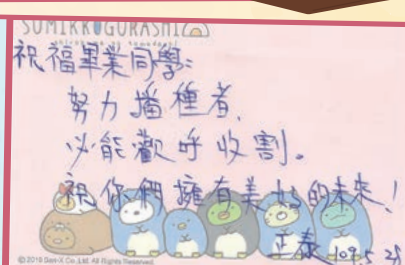 SUMIKKOGURASHI
祝福畢業同學:
努力播種者,
必能歡呼收割。
祝你們擁有美好的未來!
正泰 109.5.28
©2019 San-X Co., Ltd. All Rights Reserved.